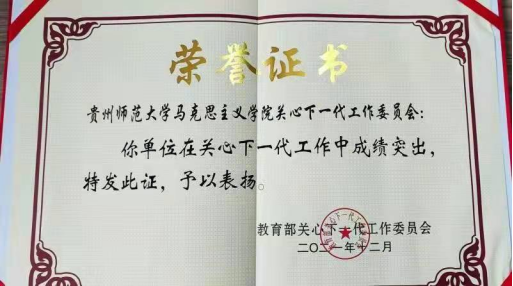 荣誉证书
贵州师范大学马克思主义学院关心下一代工作委员会：
你单位在关心下一代工作中成绩突出，
特发此证，予以表扬。
教育部关心下一代工作委员会
二〇二一年十二月